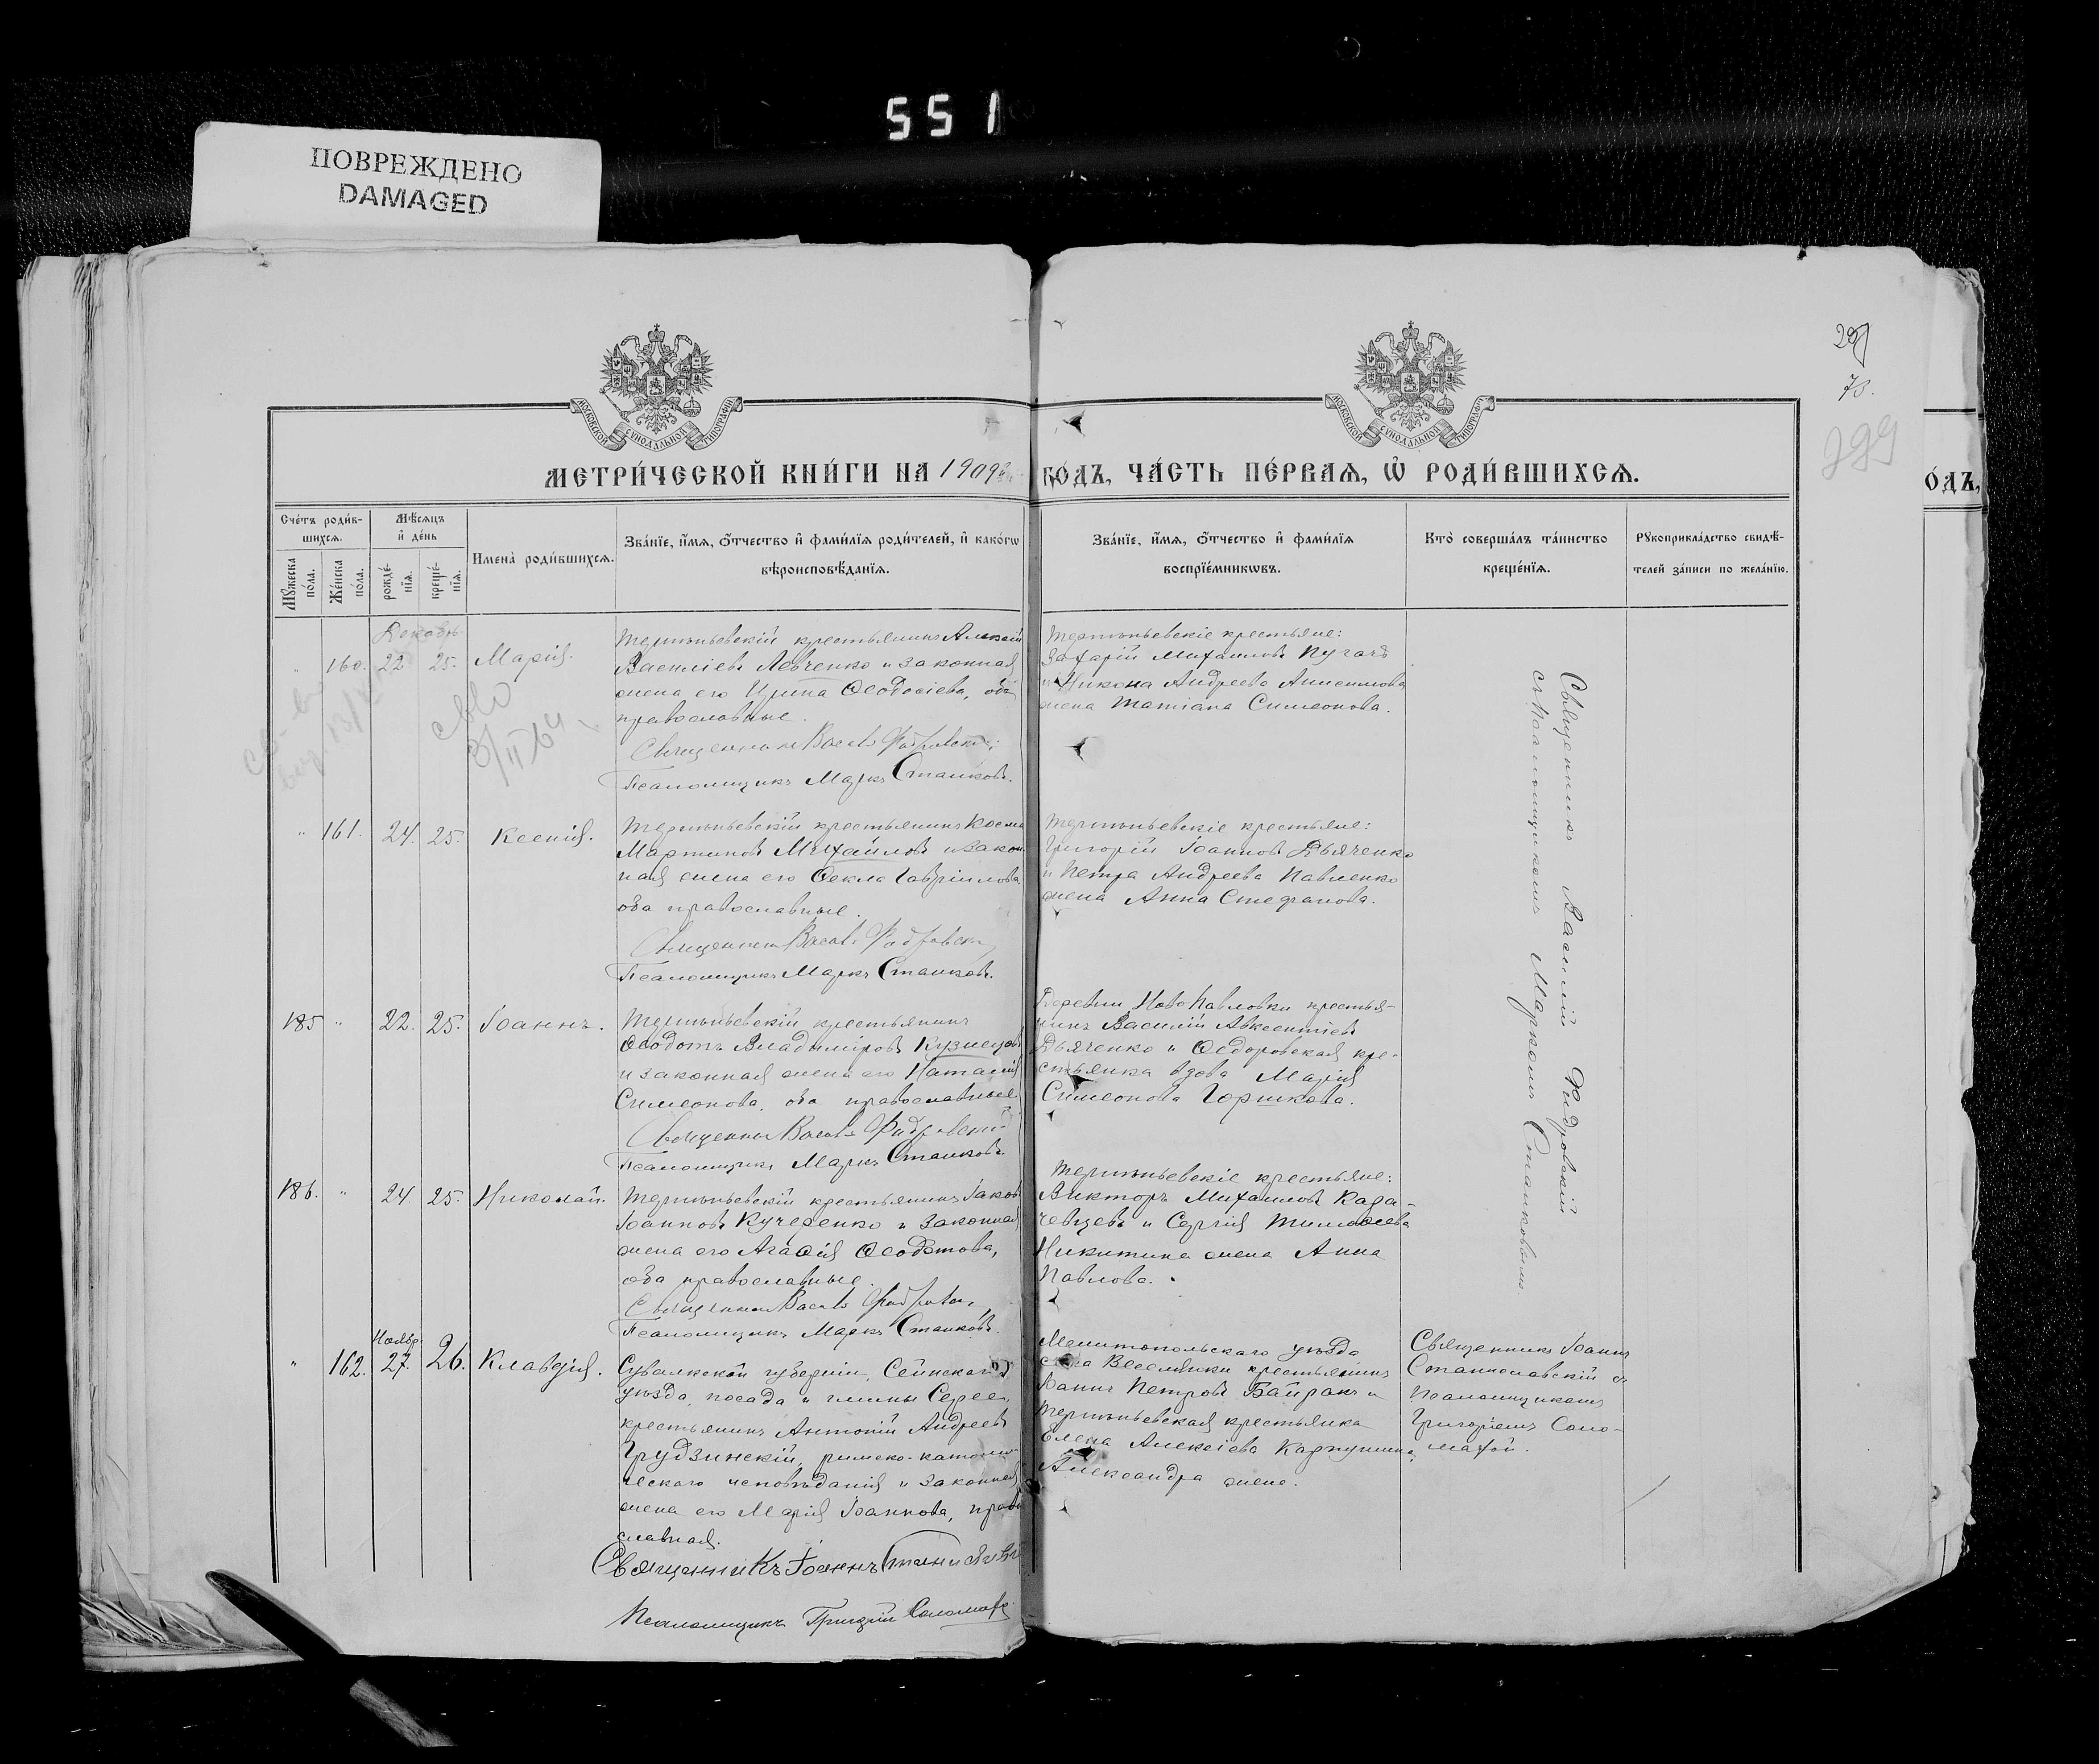 551
ПОВРЕЖДЕНО
DAMAGED
73.
299
МОСКОВСКОЙ СѴНОДАЛЬНОЙ ТИПОГРАФІИ
МОСКОВСКОЙ СѴНОДАЛЬНОЙ ТИПОГРАФІИ
МЕТРИ́ЧЕСКОЙ КНИ́ГИ НА 1909 ГО́ДЪ, ЧА́СТЬ ПЕ́РВАЯ, Ѡ҆ РОДИ́ВШИХСЯ.
О́ДЪ,
Сче́тъ роди́в-
шихся.
Мꙋ́жеска по́ла.
Же́нска по́ла.
Мѣ́сяцъ
и҆ де́нь
рожде́-
нїя.
креще́-
нїя.
Имена̀ роди́вшихся.
Зва́нїе, и҆́мя, ѻ҆́тчество и҆ фами́лїя роди́телей, и҆ како́гѡ
вѣроисповѣ́данїя.
Зва́нїе, и҆́мя, ѻ҆́тчество и҆ фами́лїя
воспрїе́мникѡвъ.
Кто̀ соверша́лъ та́инство
креще́нїя.
Рꙋкоприкла́дство свидѣ́-
телей за́писи по жела́нїю.
Декабрь
" 160. 22 25. Марія.
Терпѣньевскій крестьянинъ Алексій
Василіевъ Левченко и законная
жена его Ирина Ѳеодосіева, оба
православные.
Священникъ Василій Фидровскій
Псаломщикъ Маркъ Станковъ.
Терпѣньевскіе крестьяне:
Захарій Михаиловъ Пугачъ
и Никона Андреева Анисимова
жена Татіана Симеонова.
Священникъ Василій Фидровскій
съ псаломщикомъ Маркомъ Станковымъ
8/II 64
" 161. 24. 25. Ксенія.
Терпѣньевскій крестьянинъ Косма
Мартиновъ Михайловъ и закон-
ная жена его Ѳекла Гавріилова
оба православные.
Священникъ Василій Фидровскій
Псаломщикъ Маркъ Станковъ.
Терпѣньевскіе крестьяне:
Григорій Іоанновъ Дьяченко
и Петра Андреева Павленко
жена Анна Стефанова.
185 " 22. 25. Іоаннъ.
Терпѣньевскій крестьянинъ
Ѳеодотъ Владиміровъ Кузнецовъ
и законная жена его Наталія
Симеонова, оба православные.
Священникъ Василій Фидровскій
Псаломщикъ Маркъ Станковъ.
Деревни НовоПавловки крестья-
нинъ Василій Авксентіевъ
Дьяченко и Ѳедоровская кре-
стьянка вдова Марія
Симеонова Горшкова.
186. " 24 25. Николай.
Терпѣньевскій крестьянинъ Іаковъ
Іоанновъ Кучеренко и законная
жена его Агаѳія Ѳеодотова,
оба православные.
Священникъ Василій Фидровскій
Псаломщикъ Маркъ Станковъ.
Терпѣньевскіе крестьяне:
Викторъ Михаиловъ Када-
чевцевъ и Сергія Тимоѳеева
Никитина жена Анна
Павлова.
Ноябр.
" 162. 27. 26. Клавдія.
Сувалкской губерніи, Сейнскаго
уѣзда, посада и гмины Сереи,
крестьянинъ Антоній Андреевъ
Грудзинскій, римско-католи-
ческаго исповѣданія и законная
жена его Марія Іоаннова, право-
славная.
Священникъ Іоаннъ Станиславскій
Псаломщикъ Григорій Соломаха
Мелитопольскаго уѣзда
села Веселянки крестьянинъ
Іоаннъ Петровъ Байракъ и
Терпѣньевская крестьянка
Елена Алексіева Карпушина,
Александра жена.
Священникъ Іоаннъ
Станиславскій съ
псаломщикомъ
Григоріемъ Соло-
махой.